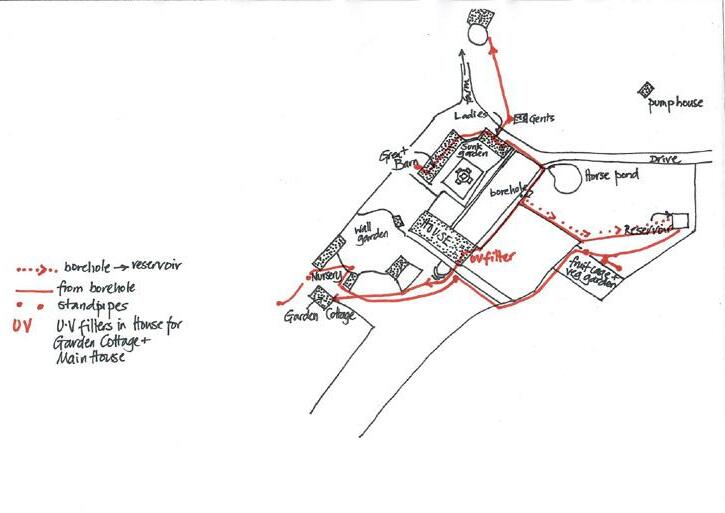 Farm
Ladies
Gents
pumphouse
Great
Barn
Sunk
garden
Drive
Horse pond
borehole
Wall
garden
HOUSE
Reservoir
UV filter
fruit cage +
veg garden
Nursery
Garden Cottage
borehole → reservoir
from borehole
standpipes
UV U.V fillers in House for
Garden Cottage +
Main House